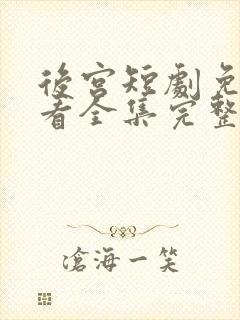 後宮短劇免
看全集完整
滄海一笑